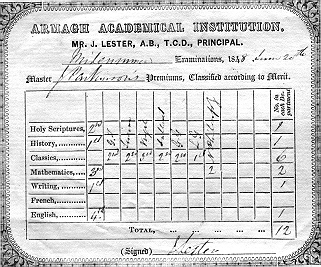 ARMAGH ACADEMICAL INSTITUTION.
MR. J. LESTER, A.B., T.C.D., PRINCIPAL.
Midsummer Examinations, 1848 June 20th
Master J Parkinson's Premiums, Classified according to Merit.
No. in each Department
Holy Scriptures, 2nd 1
History, 1st 1
Classics, 2nd 2nd 3rd 2nd 2nd 1st 6
Mathematics, 3rd 2 2
Writing, 1st 1
French,
English, 4th 1
TOTAL, 12
(Signed) J Lester